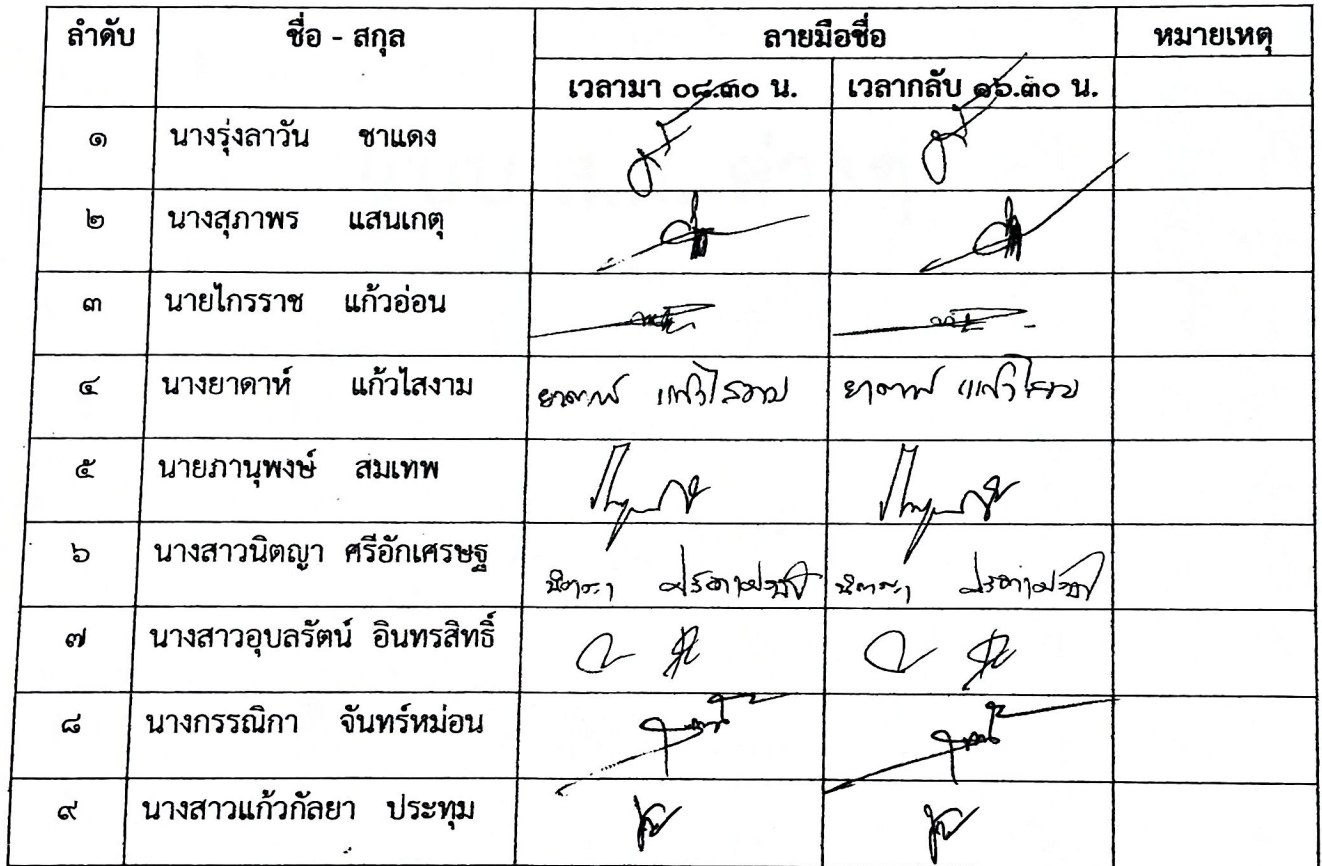 ลำดับ ชื่อ - สกุล ลายมือชื่อ หมายเหตุ
เวลามา ๐๘.๓๐ น. เวลากลับ ๑๖.๓๐ น.
๑ นางรุ่งลาวัน ชาแดง
๒ นางสุภาพร แสนเกตุ
๓ นายไกรราช แก้วอ่อน
๔ นางยาดาห์ แก้วไสงาม ยาดาห์ แก้วไสงาม ยาดาห์ แก้วไสงาม
๕ นายภานุพงษ์ สมเทพ
๖ นางสาวนิตญา ศรีอักเศรษฐ
๗ นางสาวอุบลรัตน์ อินทรสิทธิ์
๘ นางกรรณิกา จันทร์หม่อน
๙ นางสาวแก้วกัลยา ประทุม